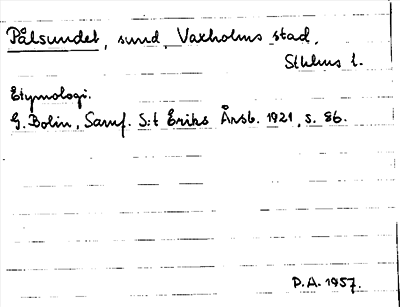 Pålsundet, sund, Vaxholms stad,
Sthlms l.
Etymologi.
G. Bolin, Samf. S:t Eriks Årsb. 1921, s. 86.
P.A. 1957.